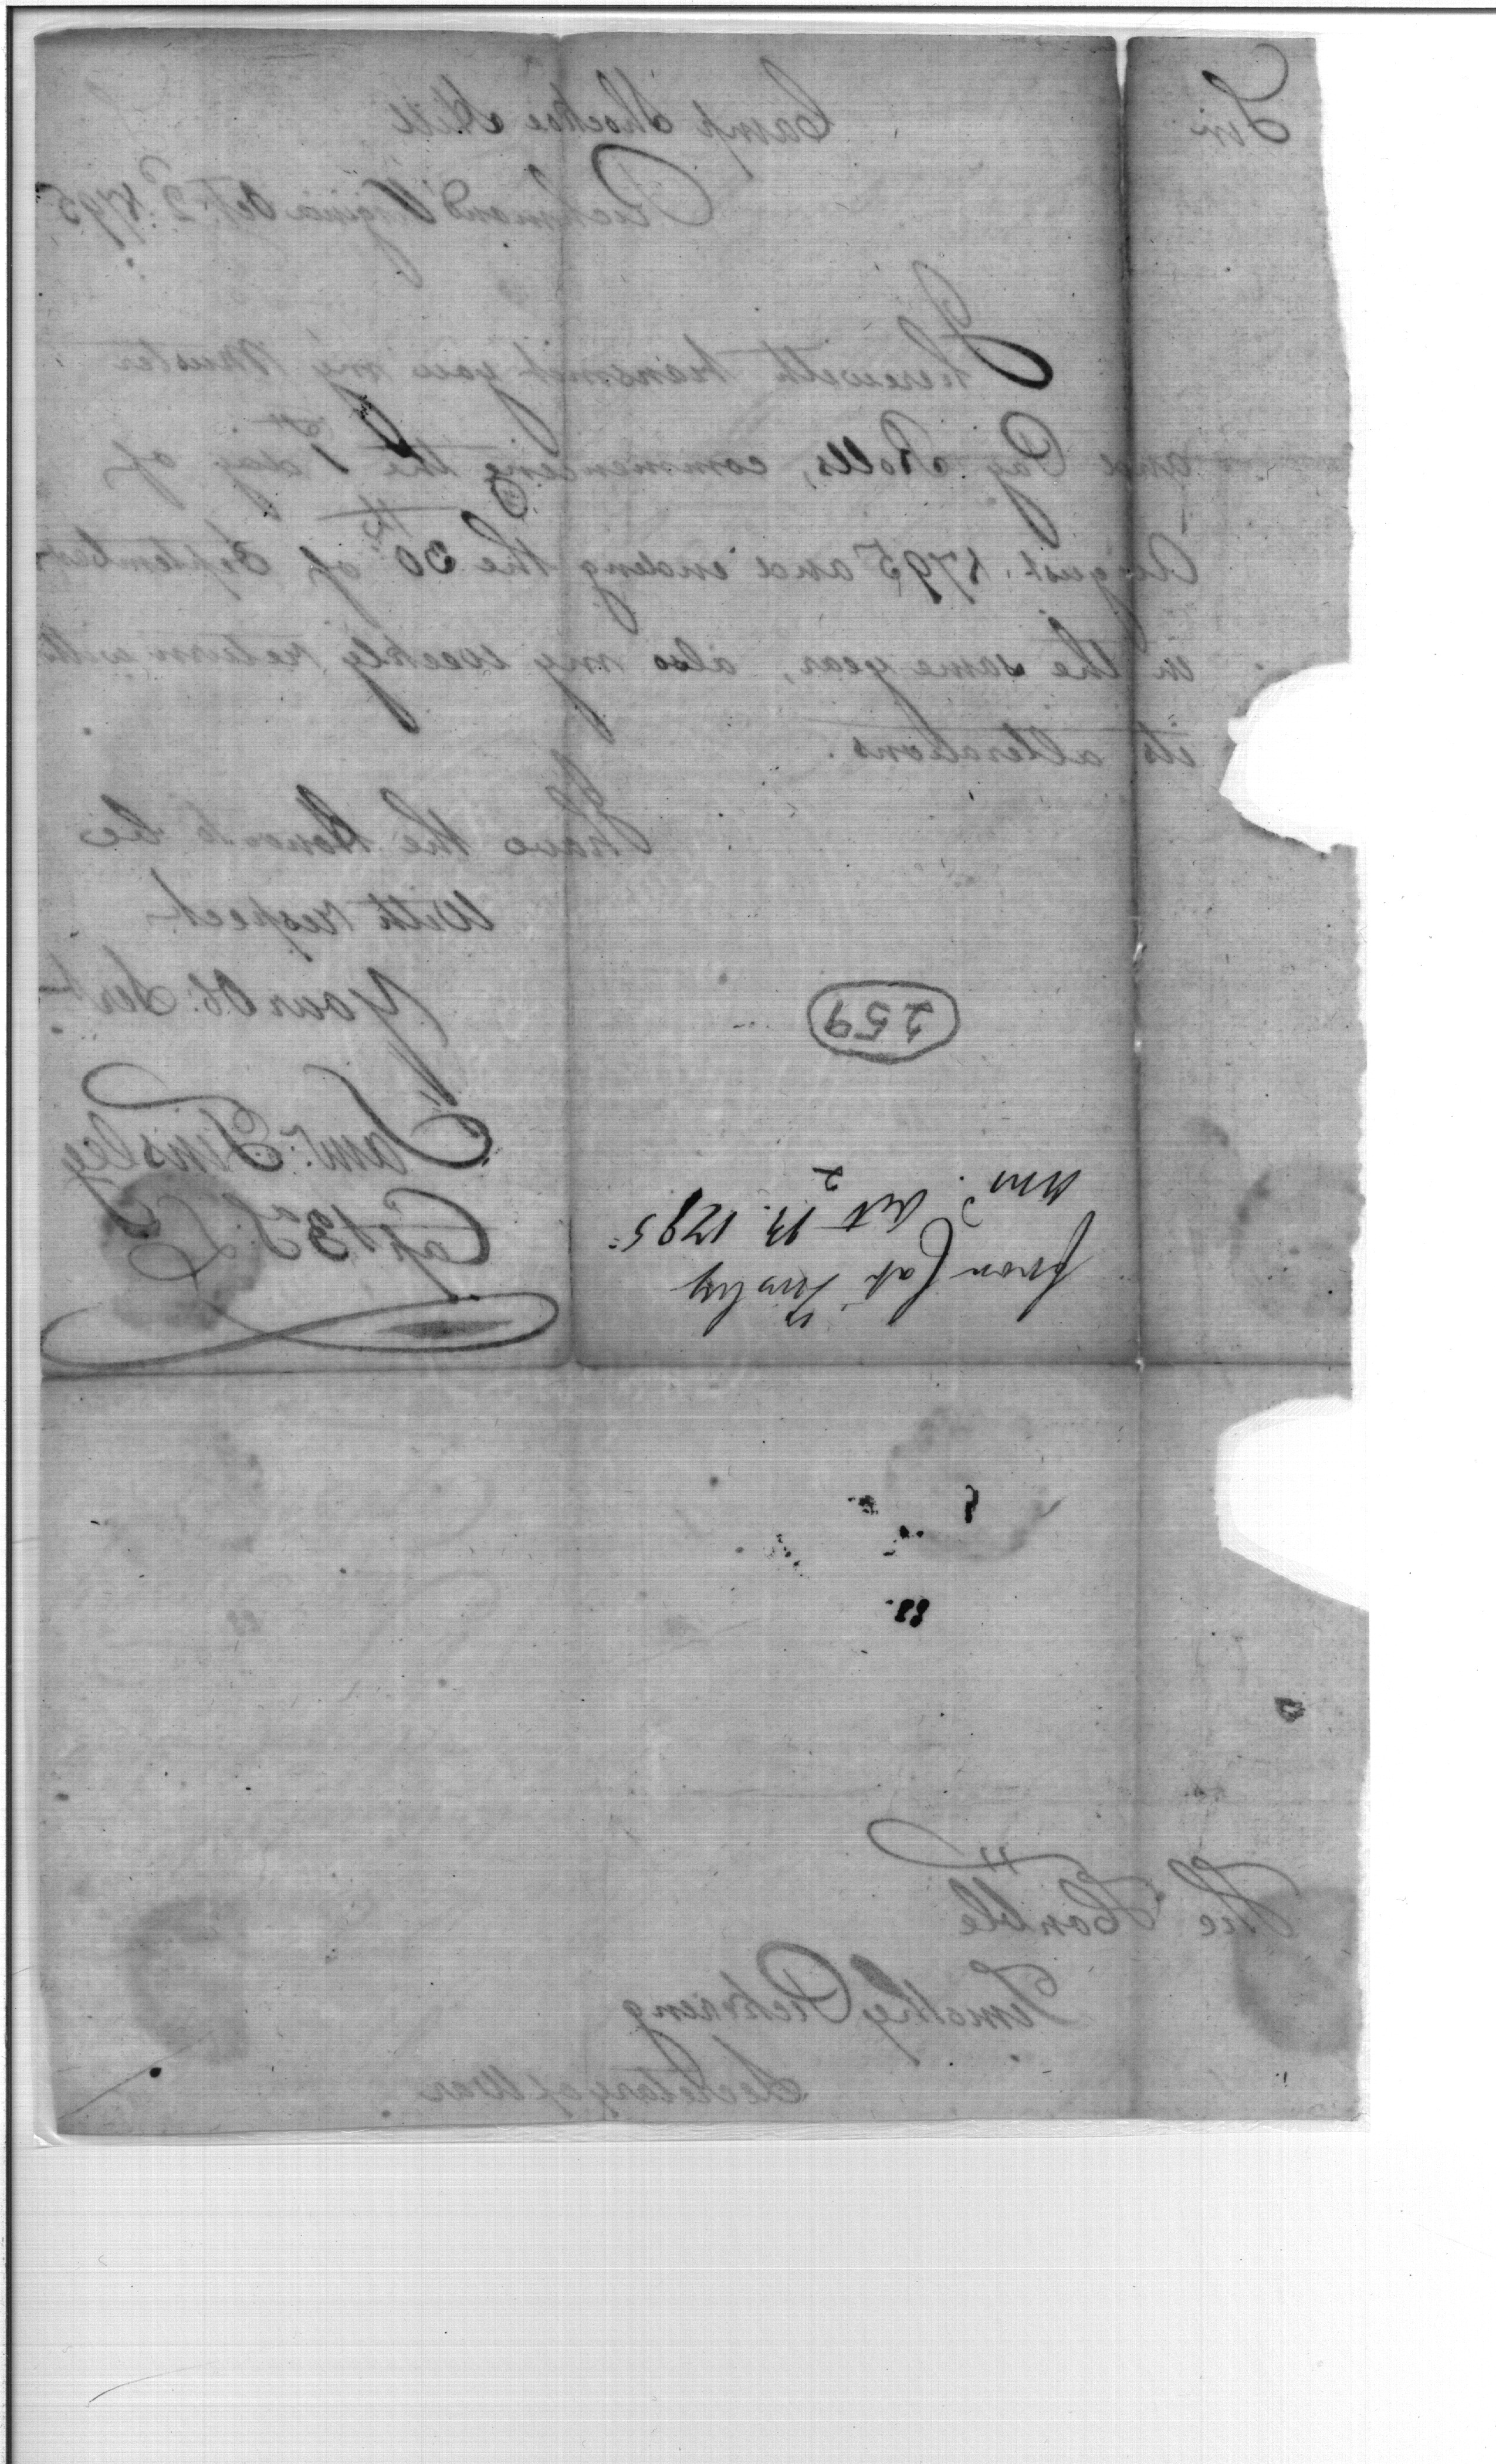 Sir
Camp Shockoe Hill
Richmond Virginia Oct. 2d. 1795
I herewith transmit you my Muster
and Pay Rolls, commencing the 1st day of
August. 1795 and ending the 30th of September
in the same year, also my weekly return with
its alterations.
I have the Honor to be
With respect
Your Ob. Servt
Saml. Tinsley
Capt 3d S. L.
259
from Capt Tinsley
Oct 2
13. 1795
The Honble
Timothy Pickering
Secretary of War